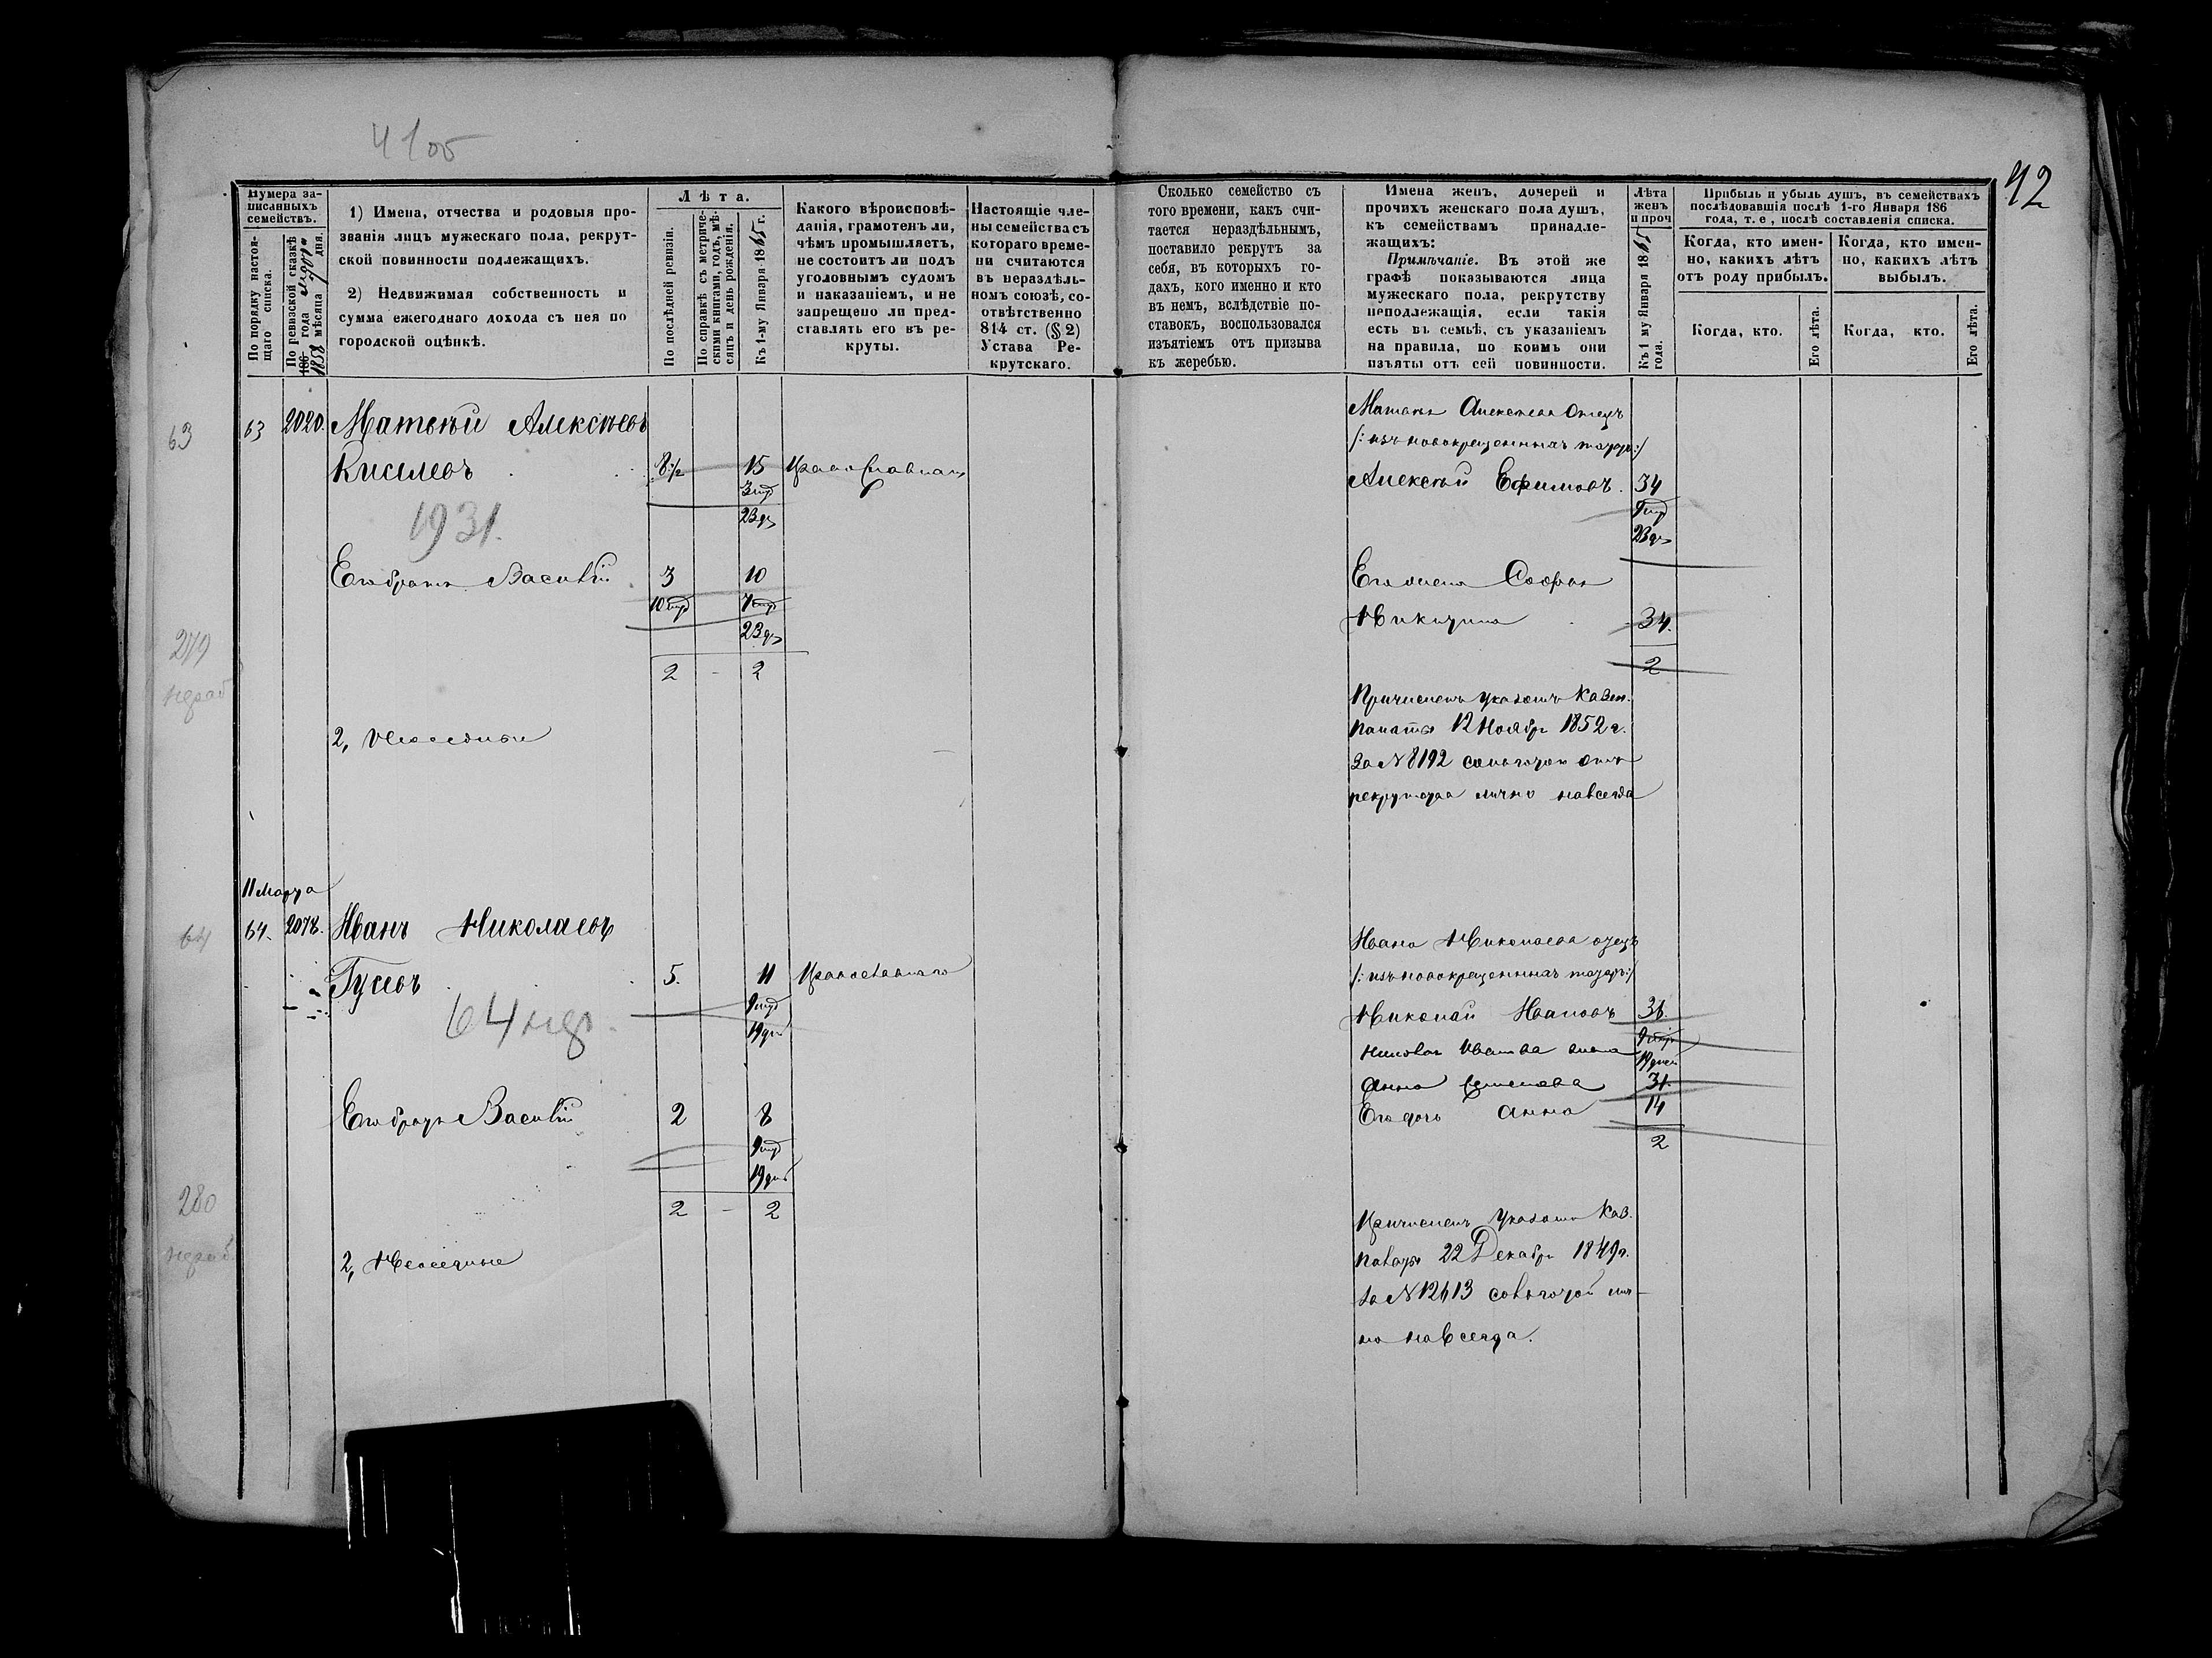 41об
42
Нумера за-
писанныхъ
семействъ.
По порядку настоя-
щаго списка.
По ревизской сказкѣ
186 года
1858 мѣсяца дня.
1) Имена, отчества и родовыя про-
званія лицъ мужескаго пола, рекрут-
ской повинности подлежащихъ.
2) Недвижимая собственность и
сумма ежегоднаго дохода съ нея по
городской оцѣнкѣ.
Лѣта.
По послѣдней ревизіи.
По справкѣ съ метриче-
скими книгами, годъ, мѣ-
сяцъ и день рожденія.
Къ 1-му Января 1865 г.
Какого вѣроисповѣ-
данія, грамотенъ ли,
чѣмъ промышляетъ,
не состоитъ ли подъ
уголовнымъ судомъ
и наказаніемъ, и не
запрещено ли пред-
ставлять его въ ре-
круты.
Настоящіе чле-
ны семейства съ
котораго време-
ни считаются
въ нераздѣль-
номъ союзѣ, со-
отвѣтственно
814 ст. (§ 2)
Устава Ре-
крутскаго.
Сколько семейство съ
того времени, какъ счи-
тается нераздѣльнымъ,
поставило рекрутъ за
себя, въ которыхъ го-
дахъ, кого именно и кто
въ немъ, вслѣдствіе по-
ставокъ, воспользовался
изъятіемъ отъ призыва
къ жеребью.
Имена женъ, дочерей и
прочихъ женскаго пола душъ,
къ семействамъ принадле-
жащихъ:
Примѣчаніе. Въ этой же
графѣ показываются лица
мужескаго пола, рекрутству
неподлежащія, если такія
есть въ семьѣ, съ указаніемъ
на правила, по коимъ они
изъяты отъ сей повинности.
Лѣта
женъ
и проч
Къ 1 му Января 1865
года.
Прибыль и убыль душъ, въ семействахъ
послѣдовавшія послѣ 1-го Января 186
года, т. е., послѣ составленія списка.
Когда, кто имен-
но, какихъ лѣтъ
отъ роду прибылъ.
Когда, кто имен-
но, какихъ лѣтъ
выбылъ.
Когда, кто.
Его лѣта.
Когда, кто.
Его лѣта.
63
63 2020. Матвѣй Алексѣевъ
Киселевъ 8 1/2 15 Православнаго
23 дн
1931.
Его братъ Василій 3 10
23 дн
2 - 2
279
2, Неимѣютъ
Матвѣя Алексѣева Отецъ
/: изъ новокрещенныхъ татаръ :/
Алексѣй Ефимовъ. 34
23 дн
Его жена Софья
Никитина 34.
2
Причисленъ указомъ Казен.
палаты 12 Ноября 1852 г.
за № 8192 со льготою отъ
рекрутства лично навсегда
11 Марта
64
64. 2078. Иванъ Николаевъ
Гусевъ 5. 11 Православнаго
19 дней
64
Его братъ Василій 2 8
19 дней
2 - 2
280
2, Неимѣютъ
Ивана Николаева отецъ
/: изъ новокрещенныхъ татаръ :/
Николай Ивановъ 36.
19 дней
Николая Иванова жена
Анна Семенова 31.
Его дочь Анна 14
2
Причисленъ указомъ Каз.
палаты 22 Декабря 1849 г.
за № 12613 со льготой лич-
но навсегда.